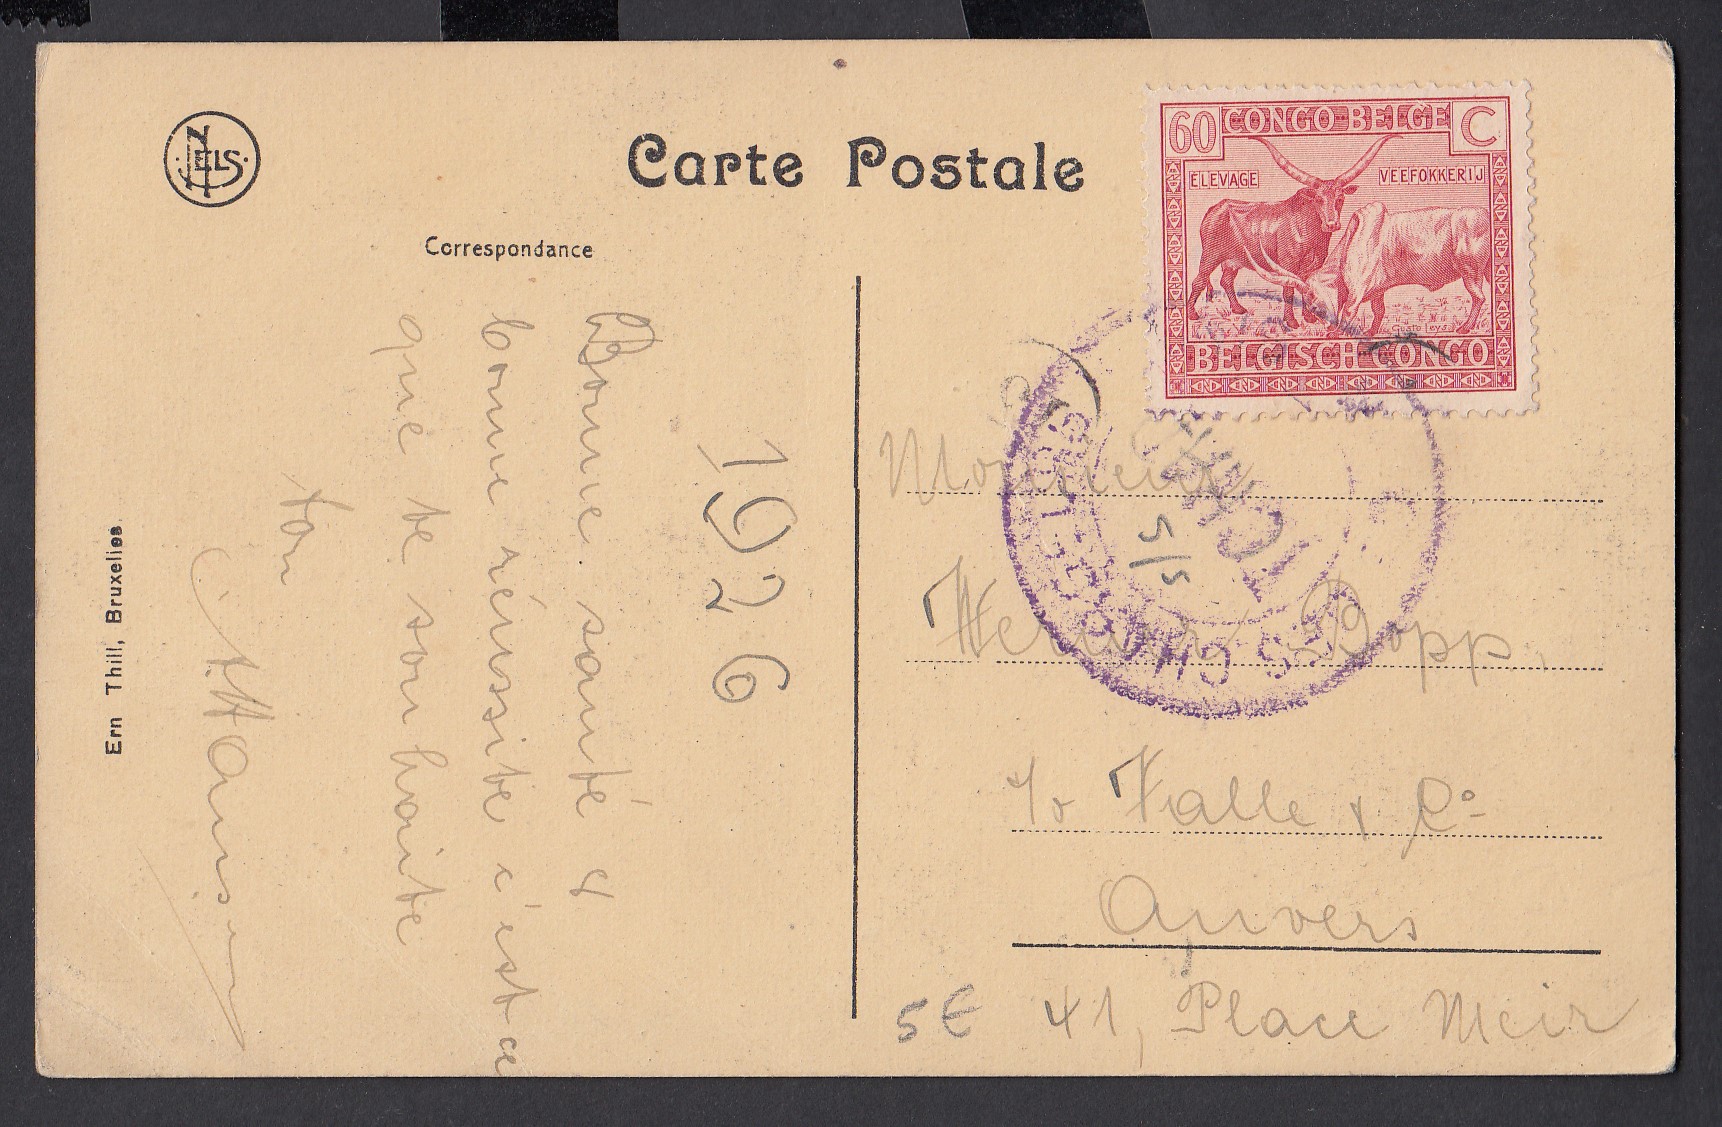 NELS
Carte Postale
Correspondance
60 CONGO BELGE C
ELEVAGE VEEFOKKERIJ
BELGISCH CONGO
1926
Bonne santé &
bonne réussite c'est ce
que te souhaite
ton
Monsieur
Werner Bopp,
c/o Valle & Co
Anvers
41, Place Meir
5/5
5€
Ern Thill, Bruxelles